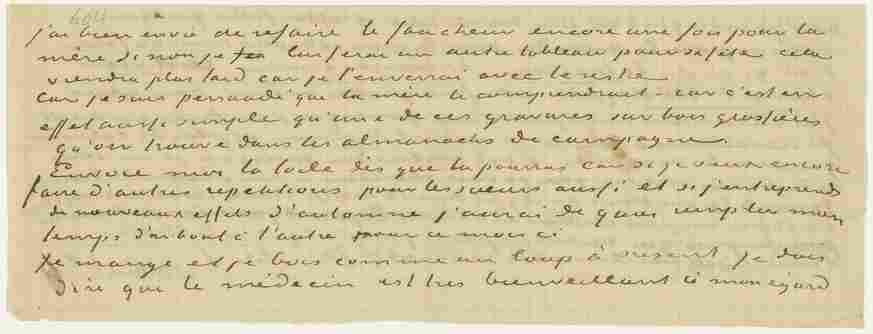 604
J'ai bien envie de refaire le faucheur encore une fois pour la
mère sinon je lui ferai un autre tableau pour sa fête cela
viendra plus tard car je l'enverrai avec le reste
Car je suis persuadé que la mère le comprendrait – car c'est en
effet aussi simple qu'une de ces gravures sur bois grossières
qu'on trouve dans les almanachs de campagne.
Envoie moi la toile dès que tu pourras car si je veux encore
faire d'autres repetitions pour les soeurs aussi et si j'entreprends
de nouveaux effets d'automne j'aurai de quoi remplir mon
temps d'un bout à l'autre pour ce mois ci
Je mange et je bois comme un loup à present je dois
dire que le médecin est très bienveillant à mon égard